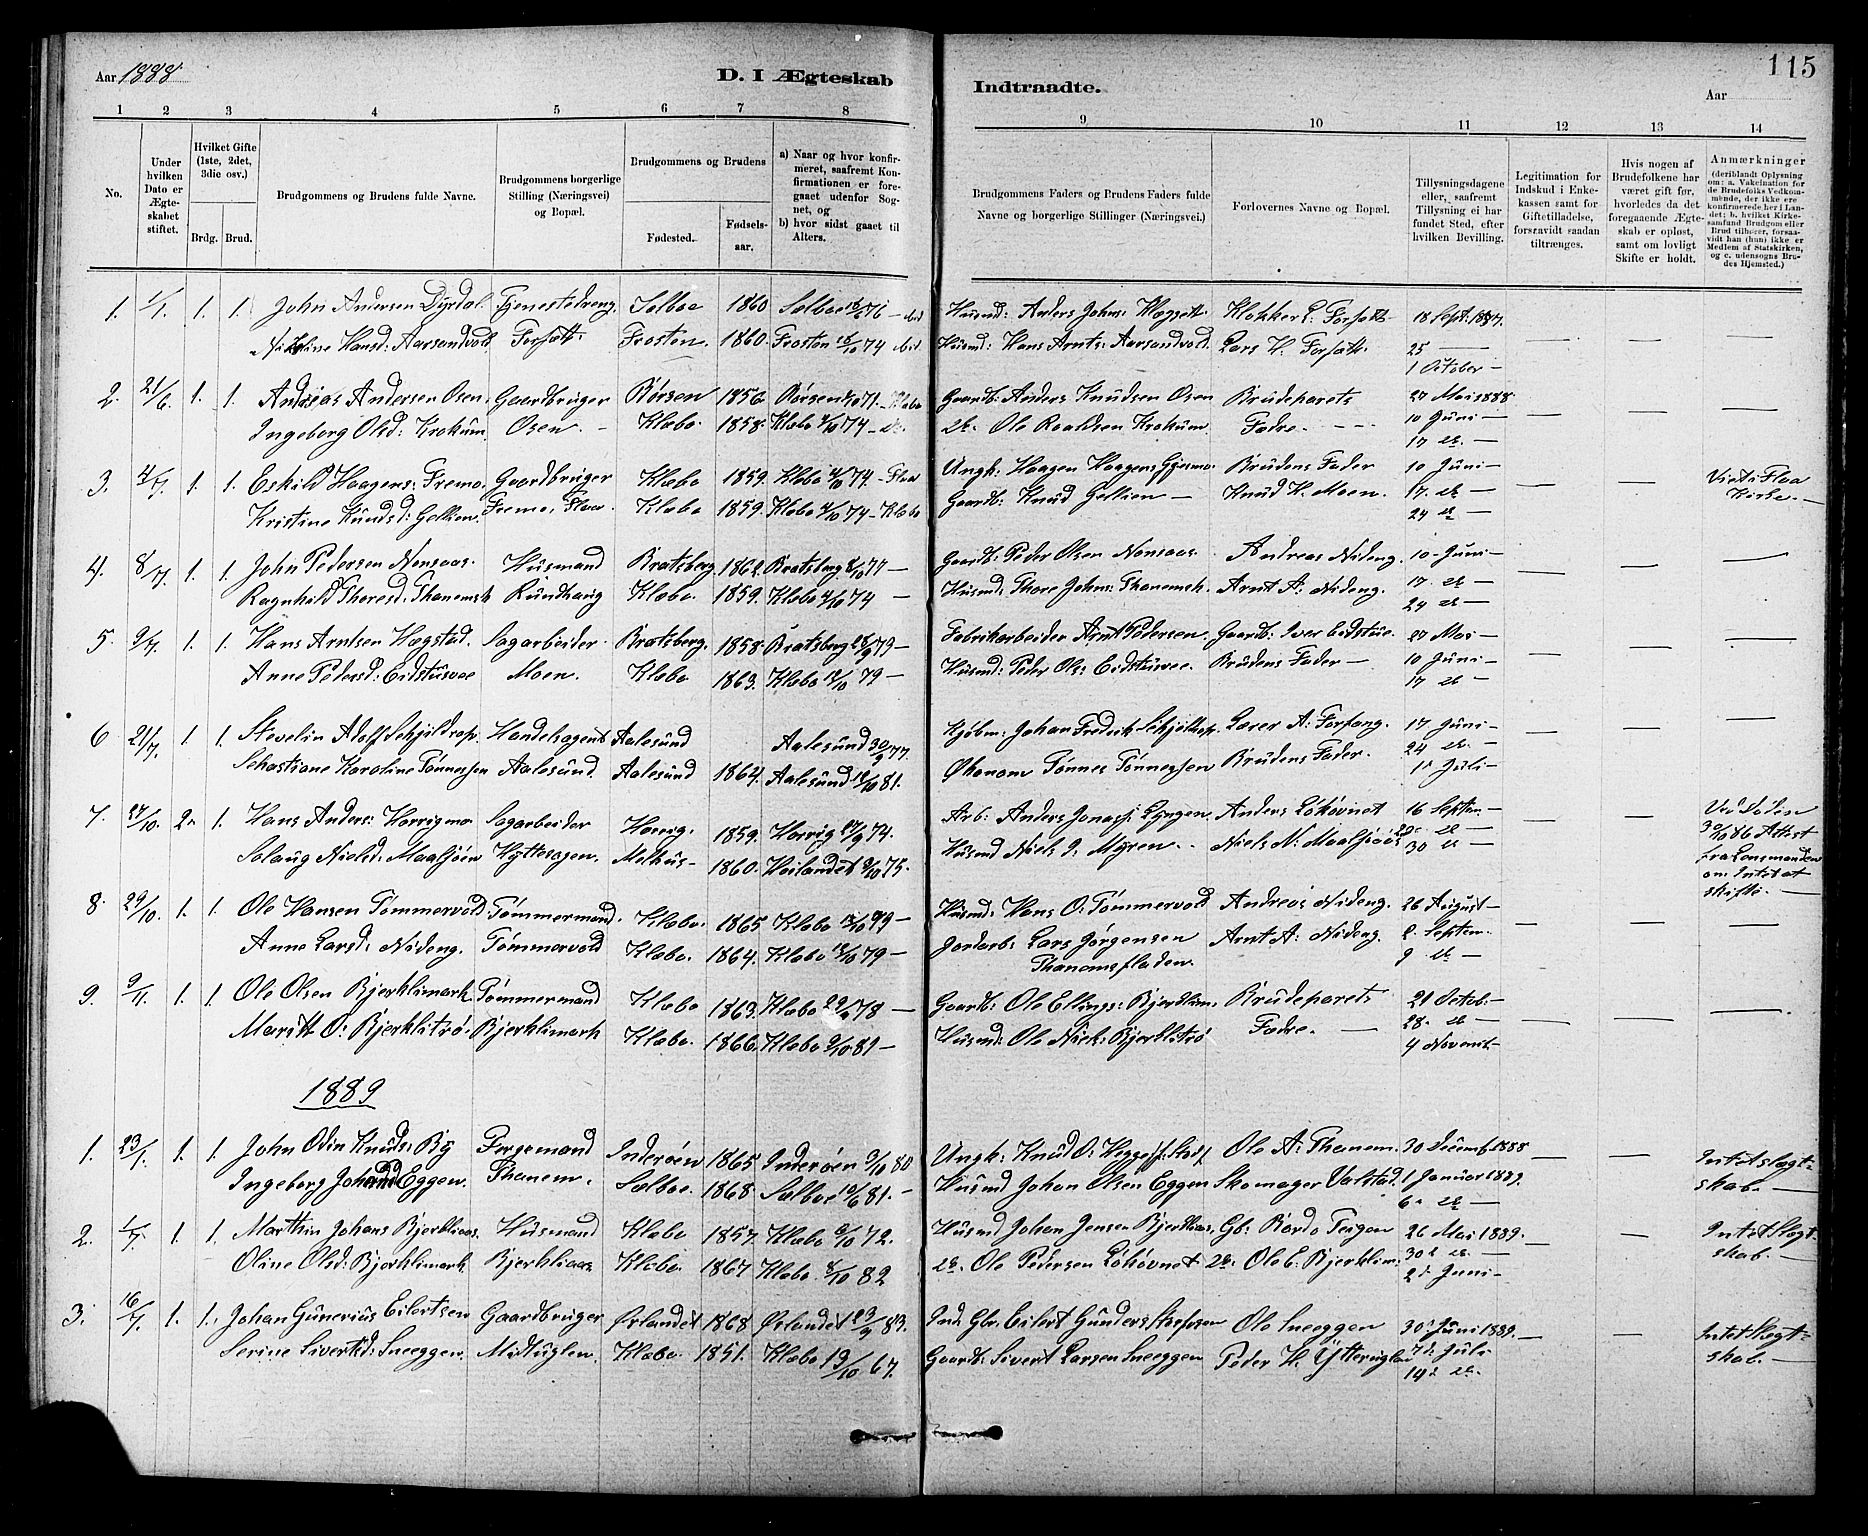 Aar 1888
D. I Ægteskab
Indtraadte.
Aar
115
1 2 3 4 5 6 7 8
9 10 11 12 13 14
No.
Under hvilken Dato er Ægteskabet stiftet.
Hvilket Gifte (1ste, 2det, 3die osv.)
Brdg. Brud.
Brudgommens og Brudens fulde Navne.
Brudgommens borgerlige Stilling (Næringsvei) og Bopæl.
Brudgommens og Brudens
Fødested.
Fødselsaar.
a) Naar og hvor konfirmeret, saafremt Konfirmationen er foregaaet udenfor Sognet, og
b) hvor sidst gaaet til Alters.
Brudgommens Faders og Prudens Faders fulde Navne og borgerlige Stillinger (Næringsvei.)
Forlovernes Navne og Bopæl.
Tillysningsdagene eller, saafremt Tillysning ei har fundet Sted, efter hvilken Bevilling.
Legitimation for Indskud i Enkekassen samt for Giftetilladelse, forsaavidt saadan tiltrænges.
Hvis nogen af Brudefolkene har været gift før, hvorledes da det foregaaende Ægteskab er opløst, samt om lovligt Skifte er holdt.
Anmærkninger (deriblandt Oplysning om: a. Vakcination for de Brudefolks Vedkommende, der ikke ere konfirmerede her i Landet; b. hvilket Kirkesamfund Brudgom eller Brud tilhører, forsaavidt han (hun) ikke er Medlem af Statskirken, og c. udensogns Brudes Hjemsted.)
1. 1/1. 1. 1. John Andersen Dyrdal Tjenestedreng, Selboe 1860 Selboe 76 Husmd: Anders Johns: Klokker L. Forsæth 18 Sept: 1887.
Hansd: Aarsandvold Forsæth. Frosten. 1860. Frosten 74 Husmd: Hans Arnts: Aarsandvold. Lars H. Forsæth. 25 —
1 October —
2. 21/6. 1. 1. Andreas Andersen Osen, Gaardbruger Børsen 1856. Børsen 71. Klæbo Gaardb: Anders Knudsen Osen Brudeparets 27 Mai 1888
Ingeborg Olsd: Krokum. Osen. — Klæbo. 1858. Klæbo 74 Ole Roaldsen Krokum. Fædre. 10 Juni —
17
3. 4/7. 1. 1. Eskild Haagens: Fremo. Gaardbruger Klæbo 1859. Klæbo 4/10 74. Flaa Ungk: Haagen Haagens: Brudens Fader 10 Juni — Viet i Flaa
Kristine Knudsd: Fremo, Flaa. Klæbo 1859. Klæbo 4/10 74 — Klæbo Gaardb: Knud — Knud H. Moen. 17. Kirke. —
24
4. 8/7. 1. 1. John Pedersen Nonsaas. Husmand Bratsberg 1862. Bratsberg 77 — Gaardb: Peder Olsen Nonsaas. Andreas Nideng. 10 Juni —
Ragnhild Thoresd: Thanemsk Rundhaug Klæbo. 1859. Klæbo 4/10 74 — Husmd: Thore Johns: Thanemsk. Arnt A: Nideng. 17.
24
5. 9/7. 1. 1. Hans Arntsen Hægstad. Sagarbeider. Bratsberg. 1858. Bratsberg 79 — Fabrikarbeider Arnt Pedersen. Gaardb: Iver Eidstue. 27 Mai —
Anne Pedersd: Eidstusvee Moen. Klæbo 1863. Klæbo 12/10 79 — Husmd: Peder Ols: Eidstusvee. Brudens Fader — 10 Juni —
17
6 21/7. 1. 1. Stevelin Adolf Schjeldrup. Handelsagent Aalesund Aalesund 30/9 77. Kjøbm: Johan Fredrik Schjeldrup. Lærer A: Forfang. 17 Juni —
Sebastiane Karoline Tønnessen Aalesund. Aalesund 1864. Aalesund 81. Økonom Tønnes Tønnessen Brudens Fader. 24
1 Juli —
7. 27/10. 2. 1. Hans Anders: Horrigmo Sagarbeider Horrig. 1859. Horrig 74. Arb: Anders Anders Løkøvnet 16 Septem —
Solaug Nielsd: Maalsjøen Hyttesagen. Melhus — 1860. 75. Husmd Niels Myren. Niels N: Maalsjøøs 30
30/10 86 Attest fra Lensmanden om Intet at skifte. —
8. 29/10. 1. 1. Ole Hansen Tømmervold. Tømmermand. Klæbo. 1865 Klæbo 79 — Husmd: Hans O: Tømmervold Andreas Nideng. 26 August —
Anne Larsd: Nideng. Tømmervold Klæbo. 1864. Klæbo 12/10 79 — Jordarb: Lars Jørgensen Arnt A: Nideng. 2. Septem.
Thanemsfladen. 9 —
9. 9/11. 1. 1. Ole Olsen Bjerklimark. Tømmermand Klæbo 1863. Klæbo 29/9 78 — Gaardb: Ole Ellings: Bjerklim: Brudeparets 21 Octob: —
Maritt O: Bjerklitrø. Bjerklimark Klæbo. 1866. Klæbo 9/10 81 — Husmd: Ole Niels: Bjerklitrø Fædre. — 28.
4 Novemb —
1889
1. 23/1. 1. 1. John Odin Knuds: By Forgemand Inderøen 1865 Inderøen 3/10 80 Ungk: Knud O: Ole A: Thanem. 30 Decemb. 1888 Intet slægt-
Ingeborg Johansd Eggen. Thanem. Sælboe. 1868. Sælboe 81. — Husmd Johan Olsen Eggen Skomager Valstad. 1 Januar 1889. skab. —
6
2. 1/7. 1. 1. Marthin Johans Bjerkliaas. Husmand Klæbo 1857. Klæbo 72. Husmd Johan Jensen Bjerkliaas. Gb: Bardo Teigen 26 Mai 1889. Intet Slægt-
Oline Olsd: Bjerklimark. Bjerkliaas Klæbo. 1867 Klæbo 8/10 82 Ole Pedersen Løkøvnet Ole E: Bjerklim: 30 skab. —
2 Juni —
3. 16/7. 1. 1. Johan Gunerius Eilertsen Gaardbruger Ørlandet 1868 Ørlandet 23/9 83. Gbr: Eilert Gunders: Ole Sneeggen 30 Juni 1889. Intet Slægt-
Serine Sivertsd: Sneeggen. Midtuglen. Klæbo. 1851. Klæbo 13/10 67. Gaardb: Sivert Larsen Sneeggen Peder H. Ytteruglen 7 Juli skab. —
14